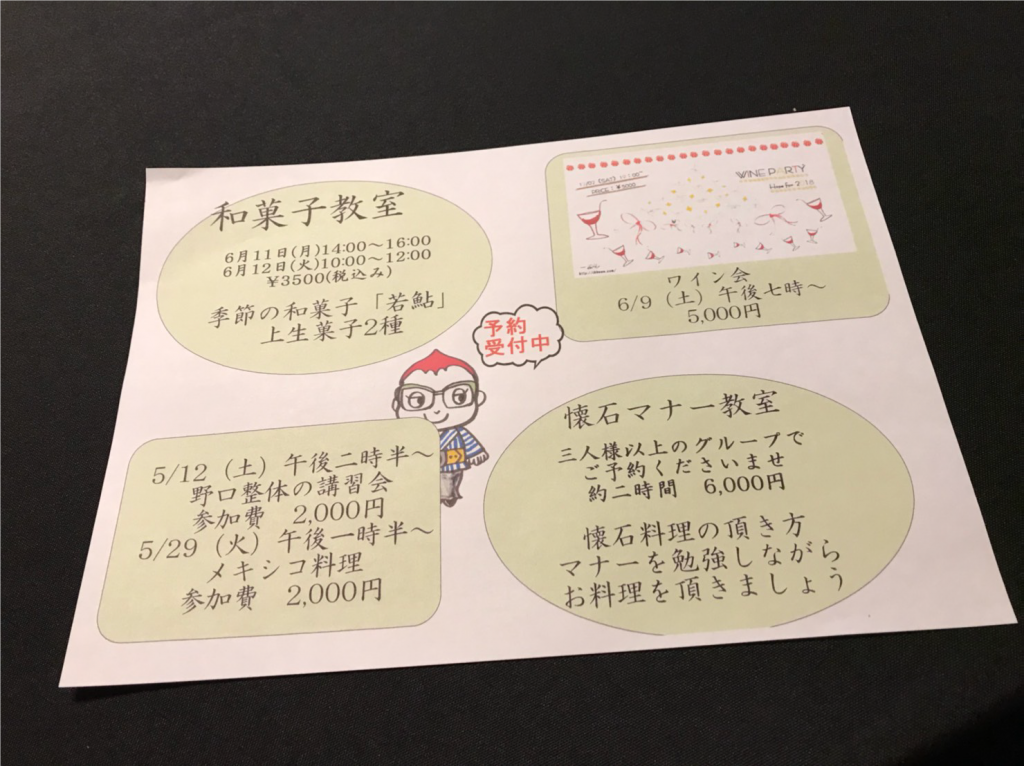 和菓子教室
6月11日(月)14:00〜16:00
6月12日(火)10:00〜12:00
¥3500(税込み)
季節の和菓子「若鮎」
上生菓子2種
WINE PARTY
ワイン会
6/9（土）午後七時〜
5,000円
予約
受付中
5/12（土）午後二時半〜
野口整体の講習会
参加費　2,000円
5/29（火）午後一時半〜
メキシコ料理
参加費　2,000円
懐石マナー教室
三人様以上のグループで
ご予約くださいませ
約二時間　6,000円
懐石料理の頂き方
マナーを勉強しながら
お料理を頂きましょう